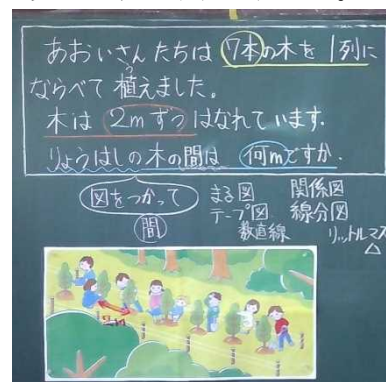 あおいさんたちは 7本の木を 1列に
ならべて 植えました。
う
木は 2mずつ はなれています.
りょうはしの木の間は 何mですか.
図をつかって
間
まる図 関係図
テープ図 線分図
数直線 リットルマス
△